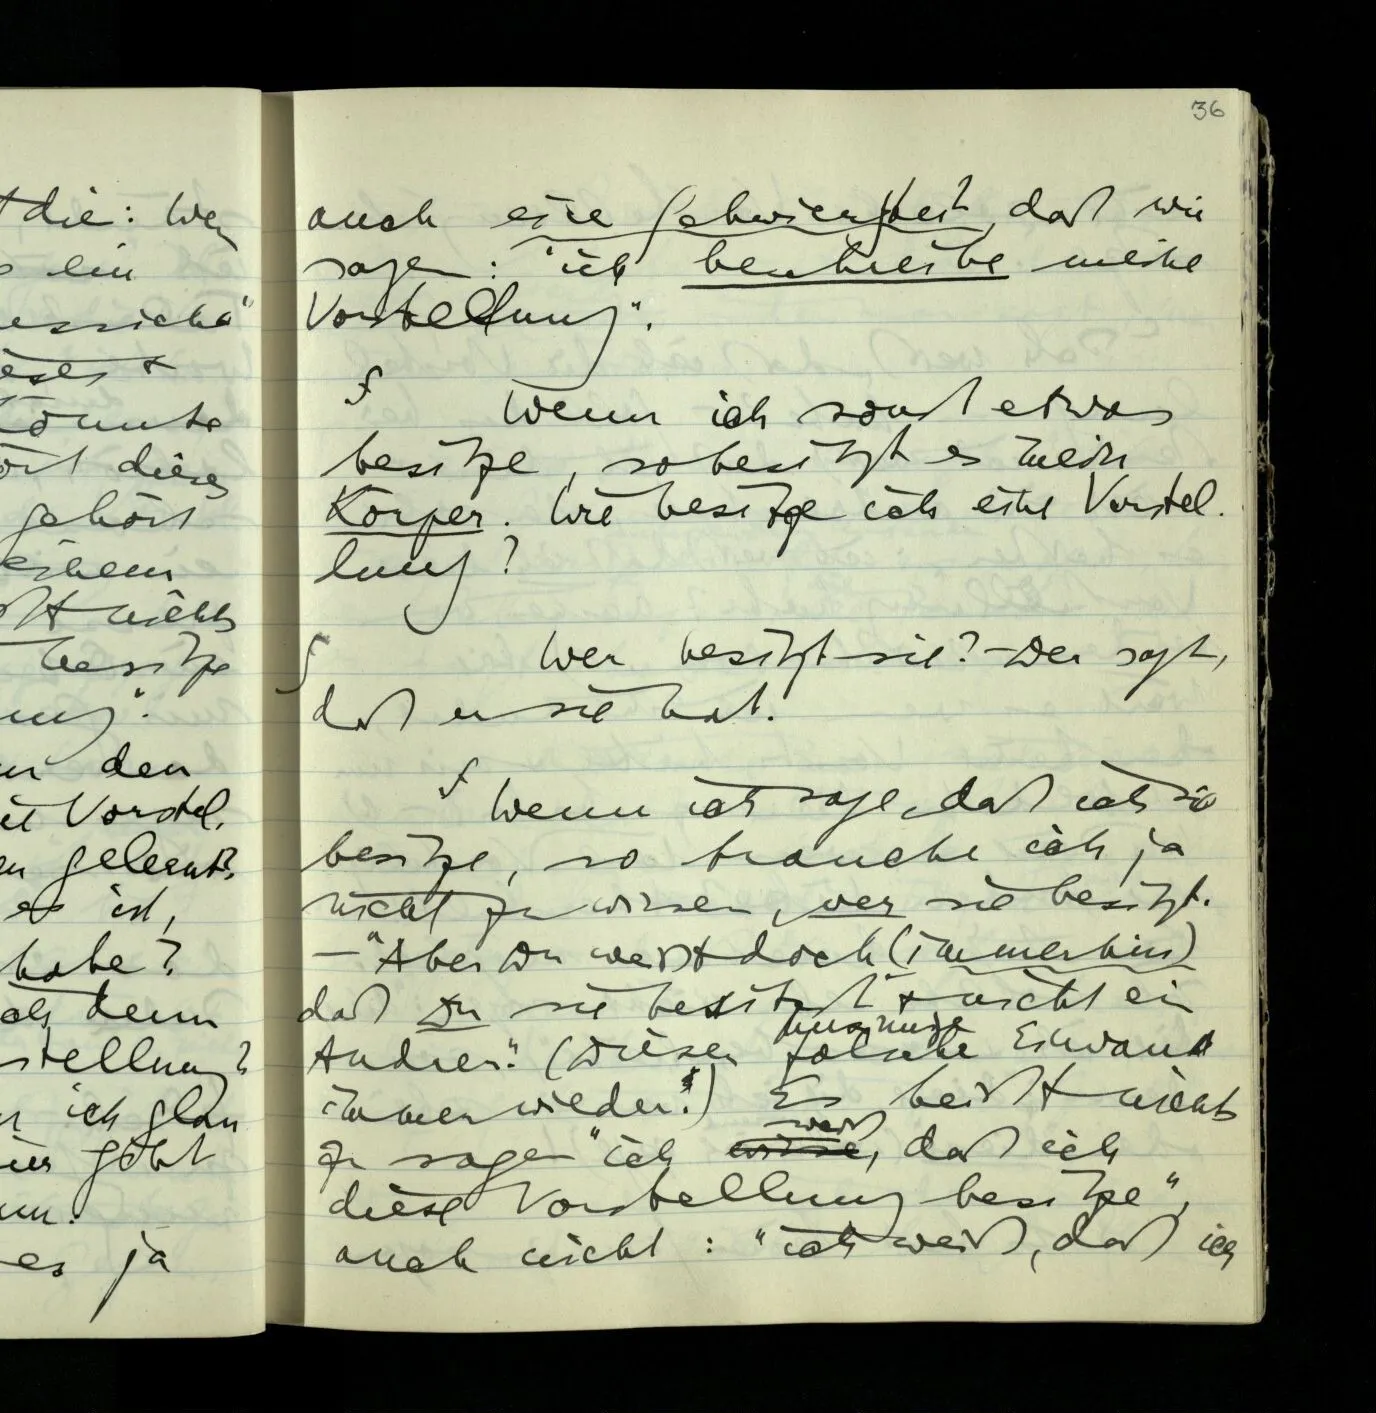 36
t die: Wer
ein
ersicht"
dieser +
könnte
ört dieses
gehört
einem
nichts
besitze
ung".
den
Vorstel-
gelernt?
es ist,
habe?
ich denn
stellung?
ich glau
gibt
es ja
auch eine Schwierigkeit, daß wir
sagen: "ich beschreibe meine
Vorstellung".
∫ Wenn ich sonst etwas
besitze, so besitzt es mein
Körper. Wie besitze ich eine Vorstel-
lung?
∫ Wer besitzt sie? – Der sagt,
daß er sie hat.
∫ Wenn ich sage, daß ich sie
besitze, so brauche ich ja
nicht zu wissen, wer sie besitzt.
– "Aber Du weißt doch (immerhin)
daß Du sie besitzt + nicht ein
Andrer". (Dieser falsche Einwand
immer wieder!) Es heißt nichts
zu sagen "ich weiß, daß ich
diese Vorstellung besitze",
auch nicht: "ich weiß, daß ich